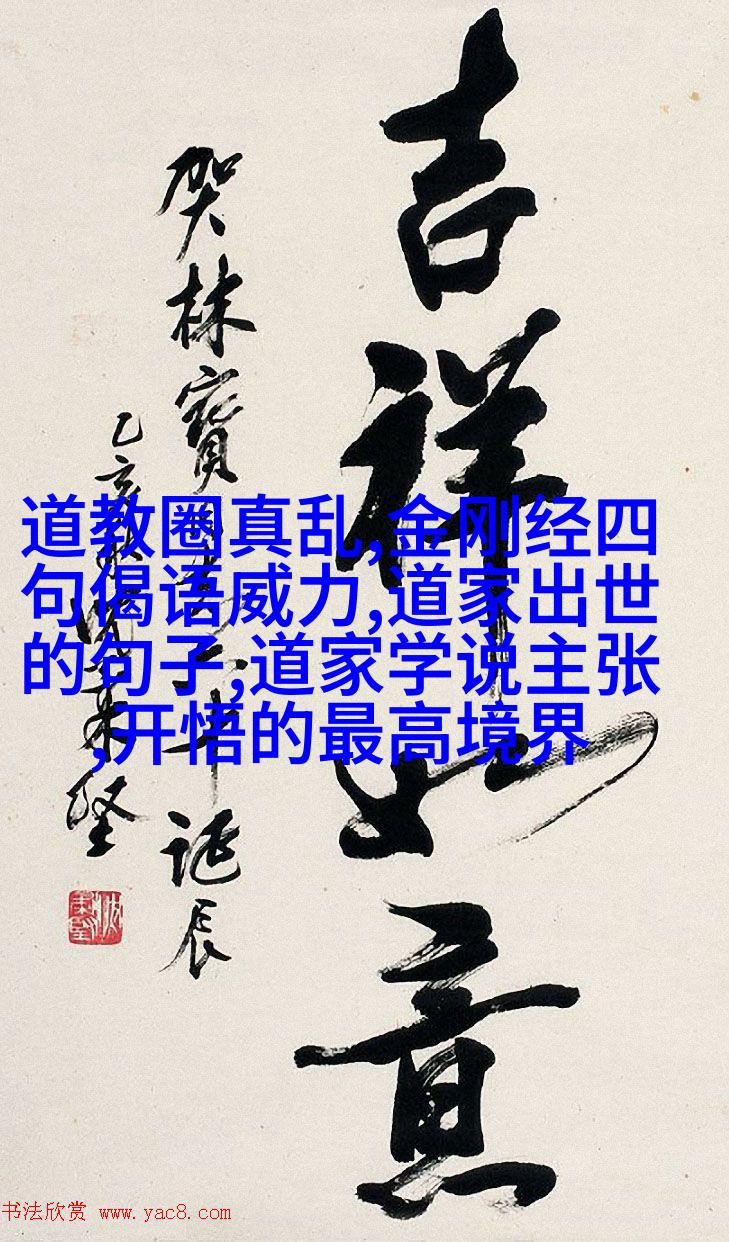 吉祥如意
贺林宝
诞辰
道教圈真乱,金刚经四
句偈语威力,道家出世
的句子,道家学说主张
,开悟的最高境界
书法欣赏 www.yac8.com